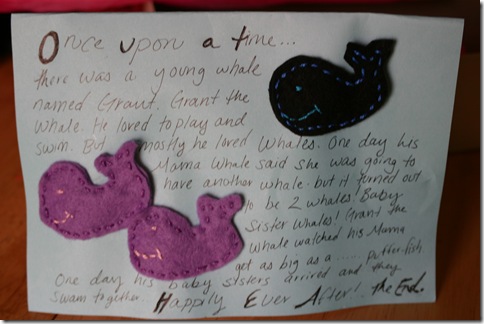 Once upon a time...
there was a young whale
named Grant. Grant the
Whale. He loved to play and
swim. But mostly he loved Whales. One day his
Mama Whale said she was going to
have another whale. but it turned out
to be 2 whales! Baby
Sister Whales! Grant the
Whale watched his Mama
get as big as a ...... puffer-fish
One day his baby sisters arrived and they
swam together... Happily Ever After! the End.